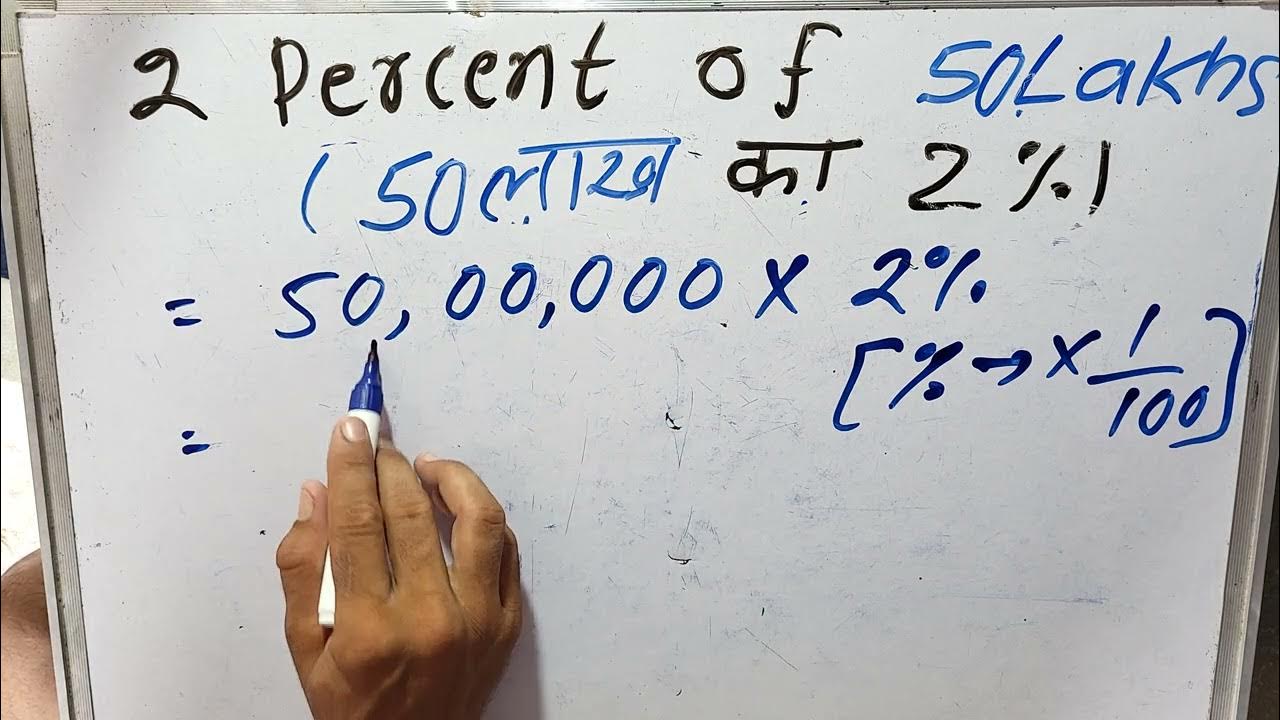 2 Percent of 50Lakhs
(50लाख का 2%)
= 50,00,000 × 2%
[% → × 1/100]
=